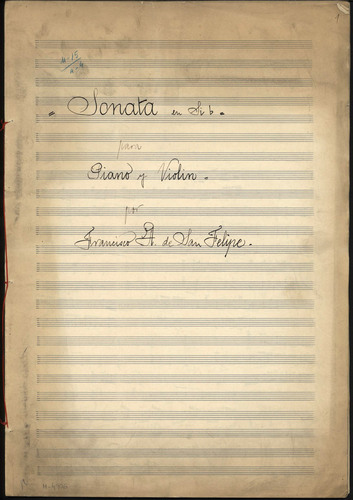 1
Sonata en Si b.
para
Piano y Violin.
por
Francisco A. de San Felipe.